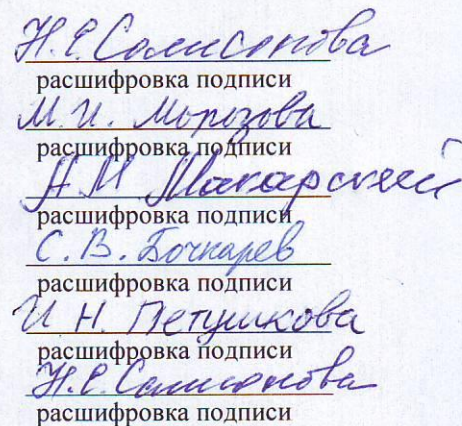 Н.Е. Самсонова
расшифровка подписи
М.И. Морозова
расшифровка подписи
А.М. Макарский
расшифровка подписи
С.В. Бочкарев
расшифровка подписи
И Н. Петушкова
расшифровка подписи
Н.Е. Самсонова
расшифровка подписи